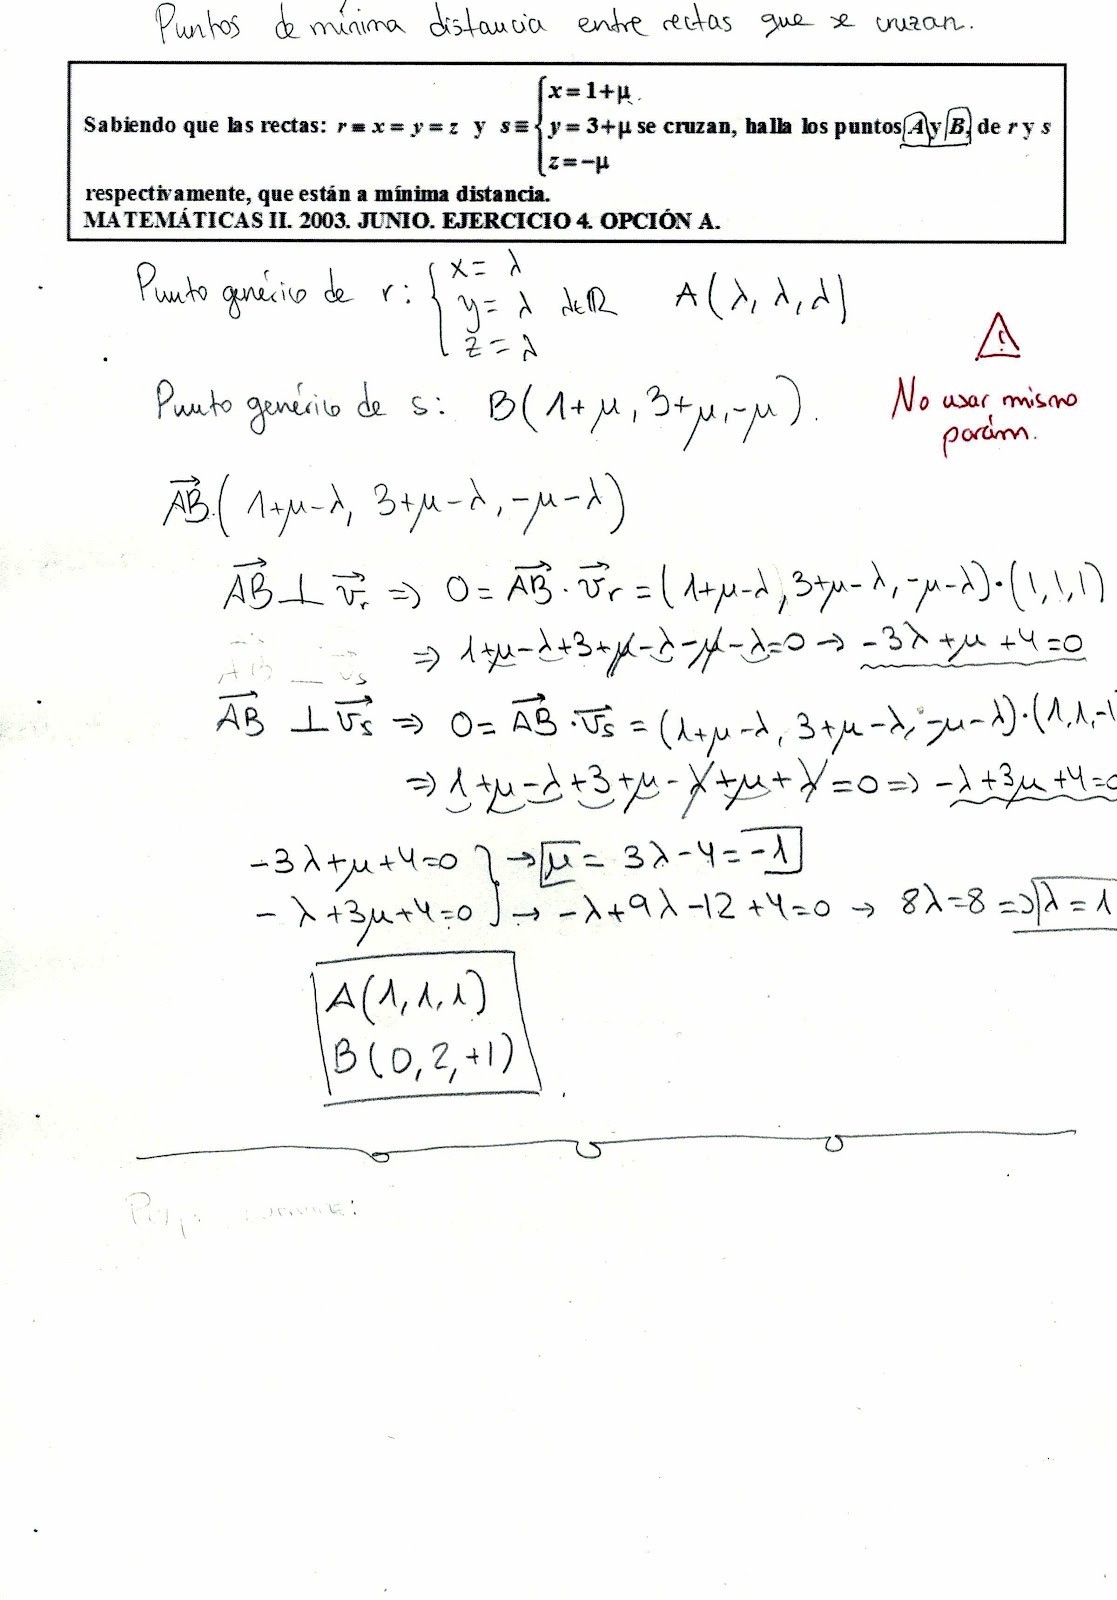 Puntos de mínima distancia entre rectas que se cruzan.
Sabiendo que las rectas: r ≡ x = y = z y s ≡ { x = 1+μ
y = 3+μ se cruzan, halla los puntos A y B, de r y s
z = −μ
respectivamente, que están a mínima distancia.
MATEMÁTICAS II. 2003. JUNIO. EJERCICIO 4. OPCIÓN A.
Punto genérico de r: { x = λ
y = λ λ∈ℝ A(λ, λ, λ)
z = λ
Punto genérico de s: B(1+μ, 3+μ, −μ).
No usar mismo
parám.
AB(1+μ−λ, 3+μ−λ, −μ−λ)
AB ⊥ v_r ⇒ 0 = AB · v_r = (1+μ−λ, 3+μ−λ, −μ−λ)·(1,1,1)
⇒ 1+μ−λ+3+μ−λ−μ−λ=0 → −3λ+μ+4=0
AB ⊥ v_s
AB ⊥ v_s ⇒ 0 = AB · v_s = (1+μ−λ, 3+μ−λ, −μ−λ)·(1,1,−1
⇒ 1+μ−λ+3+μ−λ+μ+λ=0 ⇒ −λ+3μ+4=0
−3λ+μ+4=0 } → μ = 3λ−4 = −1
−λ+3μ+4=0 } → −λ+9λ−12+4=0 → 8λ=8 ⇒ λ=1
A(1,1,1)
B(0,2,+1)